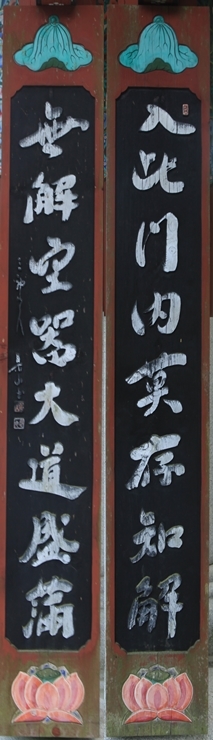 入此門內莫存知解
無解空器大道盛滿